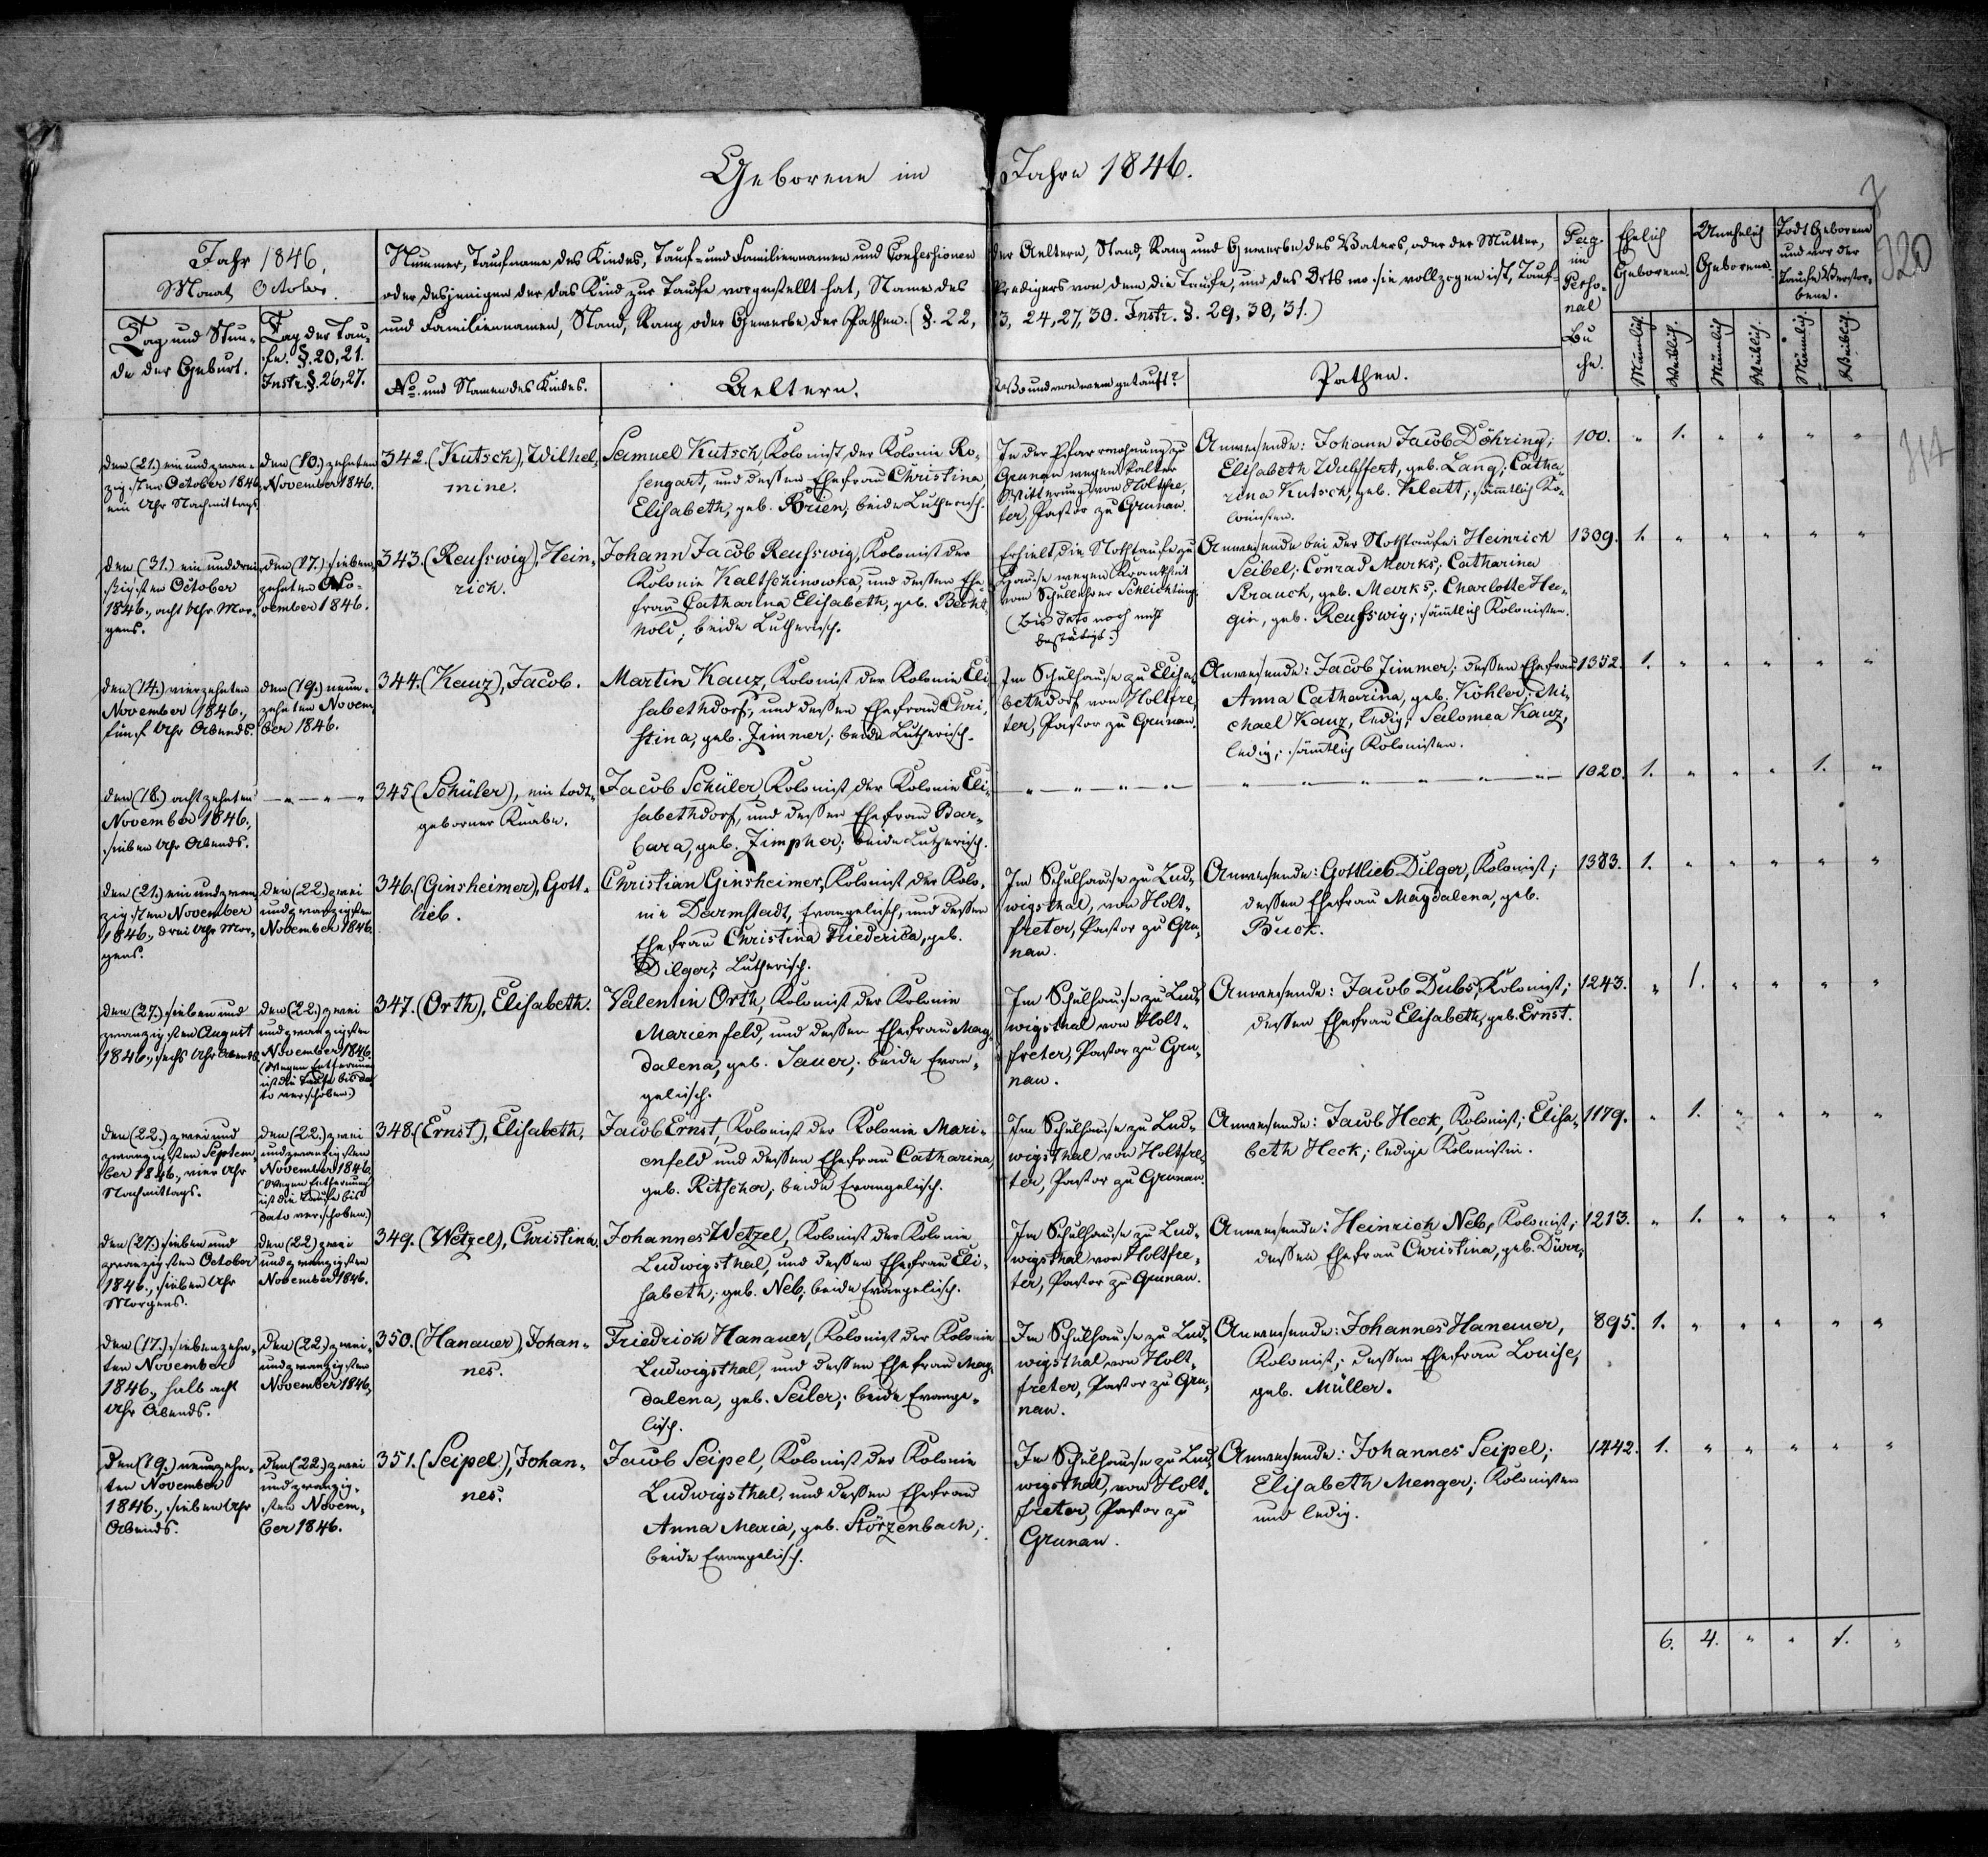 Geborene im Jahre 1846.
320
314
Jahr 1846.
Monat October.
Tag und Stun-
de der Geburt.
Tag der Tau-
fe. §. 20, 21.
Instr. §. 26, 27.
Nummer, Taufname des Kindes, Tauf- und Familiennamen und Confessionen der Aeltern, Stand, Rang und Gewerbe des Vaters, oder der Mutter,
oder desjenigen der das Kind zur Taufe vorgestellt hat, Name des Predigers von dem die Taufe, und des Orts wo sie vollzogen ist, Tauf-
und Familiennamen, Stand, Rang oder Gewerbe der Pathen. (§. 22, 23, 24, 27, 30. Instr. §. 29, 30, 31.)
No. und Namen des Kindes.
Aeltern.
Wo und von wem getauft?
Pathen.
Pag.
im
Perso-
nal
Bu-
che.
Ehelich
Geborene.
Unehelich
Geborene.
Todt Geborene
und vor der
Taufe Verstor-
bene.
Männlich.
Weiblich.
Männlich.
Weiblich.
Männlich.
Weiblich.
den (21.) ein und zwan-
zigsten October 1846.,
ein Uhr Nachmittags.
den (10.) zehnten
November 1846.
342. (Kutsch), Wilhel-
mine.
Samuel Kutsch, Kolonist der Kolonie Ro-
sengart, und dessen Ehefrau Christina
Elisabeth, geb. Brien; beide Lutherisch.
In der Pfarrwohnung zu
Grunau wegen kalter
Witterung von Holtfre-
ter, Pastor zu Grunau.
Anwesende: Johann Jacob Döhring;
Elisabeth Wulffert, geb. Lang; Catha-
rina Kutsch, geb. Klatt; sämmtlich Ko-
lonisten.
100. " 1. " " " "
den (31.) ein und drei-
ßigsten October
1846., acht Uhr Mor-
gens.
den (17.) sieben-
zehnten No-
vember 1846.
343. (Reusswig), Hein-
rich.
Johann Jacob Reusswig, Kolonist der
Kolonie Kaltschinowka, und dessen Ehe-
frau Catharina Elisabeth, geb. Becht-
hold; beide Lutherisch.
Erhielt die Nothtaufe zu
Hause wegen Krankheit
vom Schullehrer Schlichting.
(Bis dato noch nicht
bestätigt.)
Anwesende bei der Nothtaufe: Heinrich
Seibel; Conrad Marks; Catharina
Strauch, geb. Marks; Charlotte Hee-
gin, geb. Reusswig; sämtlich Kolonisten.
1309. 1. " " " " "
den (14.) vierzehnten
November 1846.,
fünf Uhr Abends.
den (19.) neun-
zehnten Novem-
ber 1846.
344. (Kauz), Jacob.
Martin Kauz, Kolonist der Kolonie Eli-
sabethdorf, und dessen Ehefrau Chri-
stina, geb. Zimmer; beide Lutherisch.
Im Schulhause zu Elisa-
bethdorf von Holtfre-
ter, Pastor zu Grunau.
Anwesende: Jacob Zimmer; dessen Ehefrau
Anna Catharina, geb. Köhler; Mi-
chael Kauz, ledig; Salomea Kauz,
ledig; sämtlich Kolonisten.
1352. 1. " " " " "
den (18.) achtzehnten
November 1846.,
sieben Uhr Abends.
— " — " — "
345. (Schüler), ein todt-
geborner Knabe.
Jacob Schüler, Kolonist der Kolonie Eli-
sabethdorf, und dessen Ehefrau Bar-
bara, geb. Zimpher; beide Lutherisch.
— " — " — " — " —
" — " — " — " — " — " —
1020. 1. " " " 1. "
den (21.) ein und zwan-
zigsten November
1846., drei Uhr Mor-
gens.
den (22.) zwei
und zwanzigsten
November 1846.
346. (Ginsheimer), Gott-
lieb.
Christian Ginsheimer, Kolonist der Kolo-
nie Darmstadt, Evangelisch, und dessen
Ehefrau Christina Friederica, geb.
Dilger; Lutherisch.
Im Schulhause zu Lud-
wigsthal, von Holt-
freter, Pastor zu Gru-
nau.
Anwesende: Gottlieb Dilger, Kolonist;
dessen Ehefrau Magdalena, geb.
Buck.
1383. 1. " " " " "
den (27.) sieben und
zwanzigsten August
1846., sechs Uhr Abends.
den (22.) zwei
und zwanzigsten
November 1846.
(Wegen Entfernung
ist die Taufe bis da-
to verschoben.)
347. (Orth), Elisabeth.
Valentin Orth, Kolonist der Kolonie
Marienfeld, und dessen Ehefrau Mag-
dalena, geb. Sauer; beide Evan-
gelisch.
Im Schulhause zu Lud-
wigsthal von Holt-
freter, Pastor zu Gru-
nau.
Anwesende: Jacob Dubs, Kolonist;
dessen Ehefrau Elisabeth, geb. Ernst.
1243. " 1. " " " "
den (22.) zwei und
zwanzigsten Septem-
ber 1846., vier Uhr
Nachmittags.
den (22.) zwei
und zwanzigsten
November 1846.
(Wegen Entfernung
ist die Taufe bis
dato verschoben.)
348. (Ernst), Elisabeth.
Jacob Ernst, Kolonist der Kolonie Mari-
enfeld und dessen Ehefrau Catharina,
geb. Ritscher; beide Evangelisch.
Im Schulhause zu Lud-
wigsthal von Holtfre-
ter, Pastor zu Grunau.
Anwesende: Jacob Heck, Kolonist; Elisa-
beth Heck; ledige Kolonistin.
1179. " 1. " " " "
den (27.) sieben und
zwanzigsten October
1846., sieben Uhr
Morgens.
den (22) zwei
und zwanzigsten
November 1846.
349. (Wetzel), Christina.
Johannes Wetzel, Kolonist der Kolonie
Ludwigsthal, und dessen Ehefrau Eli-
sabeth, geb. Neb; beide Evangelisch.
Im Schulhause zu Lud-
wigsthal von Holtfre-
ter, Pastor zu Grunau.
Anwesende: Heinrich Neb, Kolonist;
dessen Ehefrau Christina, geb. Dürr.
1213. " 1. " " " "
den (17.) siebenzehn-
ten November
1846., halb acht
Uhr Abends.
den (22.) zwei-
und zwanzigsten
November 1846.
350. (Hanauer), Johan-
nes.
Friedrich Hanauer, Kolonist der Kolonie
Ludwigsthal, und dessen Ehefrau Mag-
dalena, geb. Seiler; beide Evange-
lisch.
Im Schulhause zu Lud-
wigsthal, von Holt-
freter, Pastor zu Gru-
nau.
Anwesende: Johannes Hanauer,
Kolonist; dessen Ehefrau Louise,
geb. Müller.
895. 1. " " " " "
den (19.) neunzehn-
ten November
1846., sieben Uhr
Abends.
den (22.) zwei
und zwanzig-
sten Novem-
ber 1846.
351. (Seipel), Johan-
nes.
Jacob Seipel, Kolonist der Kolonie
Ludwigsthal, und dessen Ehefrau
Anna Maria, geb. Störzenbach;
beide Evangelisch.
Im Schulhause zu Lud-
wigsthal, von Holt-
freter, Pastor zu
Grunau.
Anwesende: Johannes Seipel;
Elisabeth Menger; Kolonisten
und ledig.
1442. 1. " " " " "
6. 4. " " 1. "